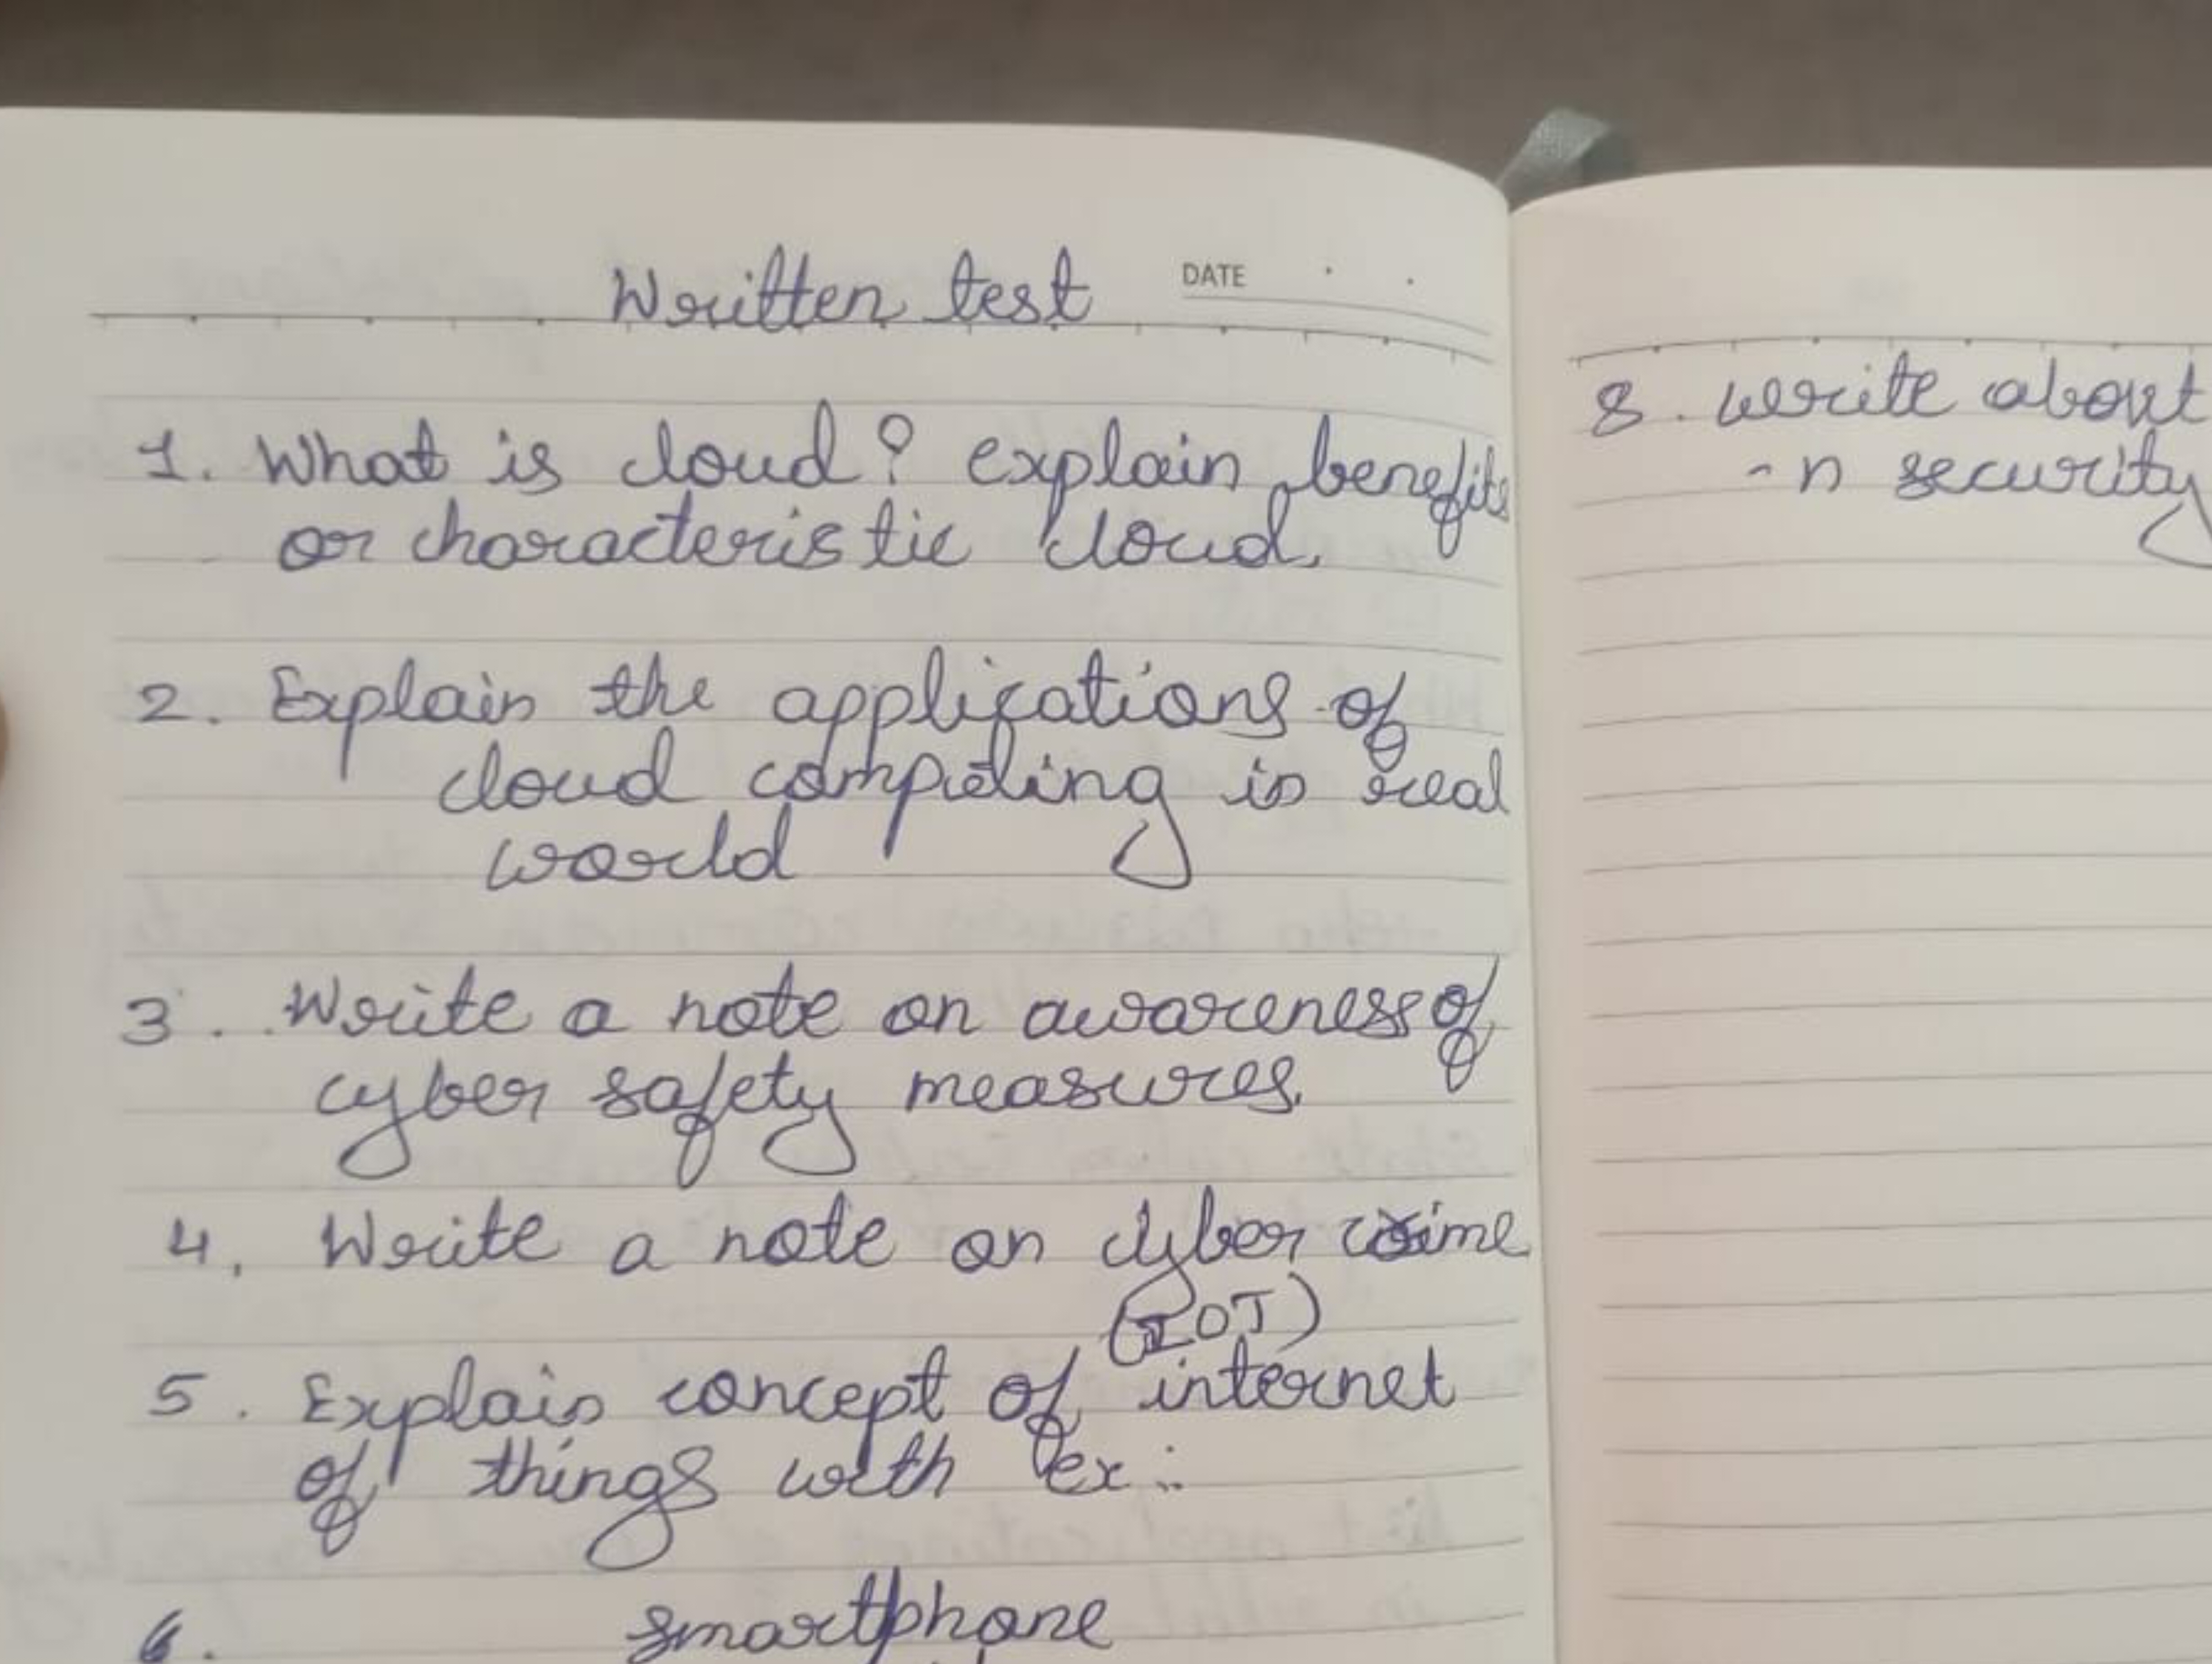 Written test
DATE
1. What is cloud? explain benefits
or characteristic cloud.
2. Explain the applications of
cloud computing in real
world
3. Write a note on awareness of
cyber safety measures.
4. Write a note on cyber crime
(IOT)
5. Explain concept of internet
of things with ex:
6. smartphone
8. write about
-n security